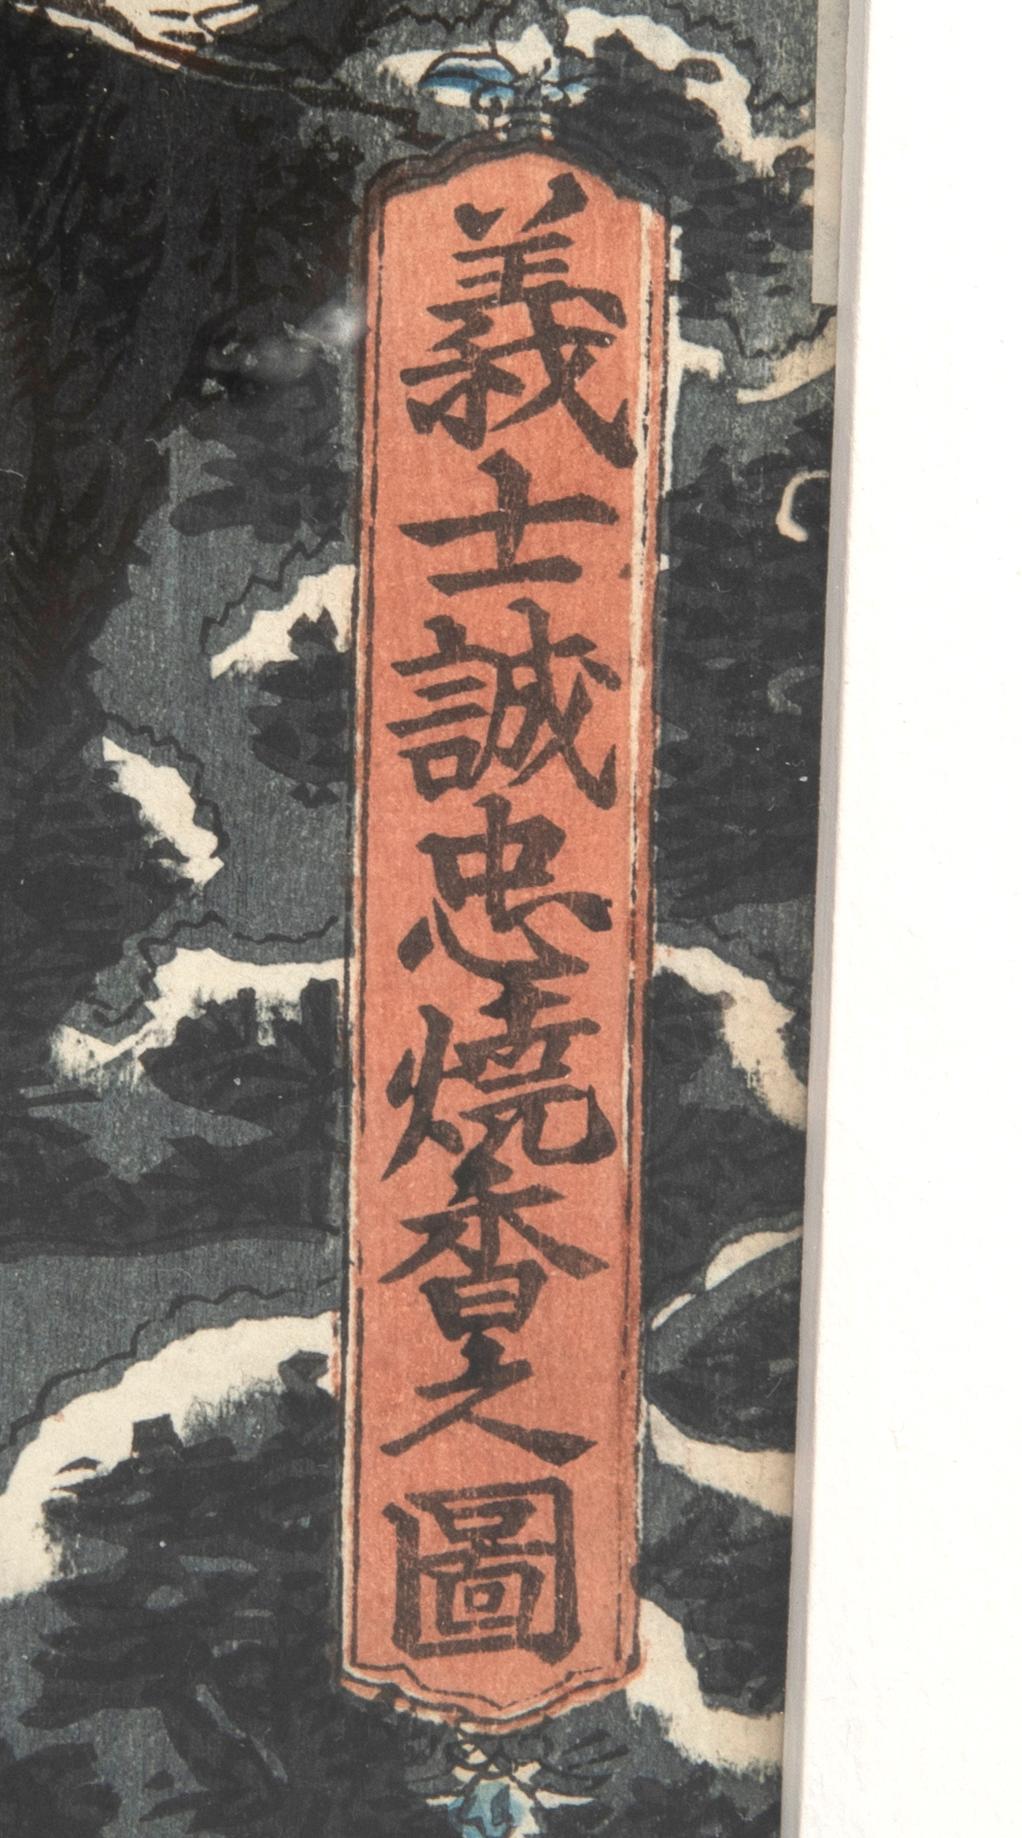 義士誠忠焼香之圖